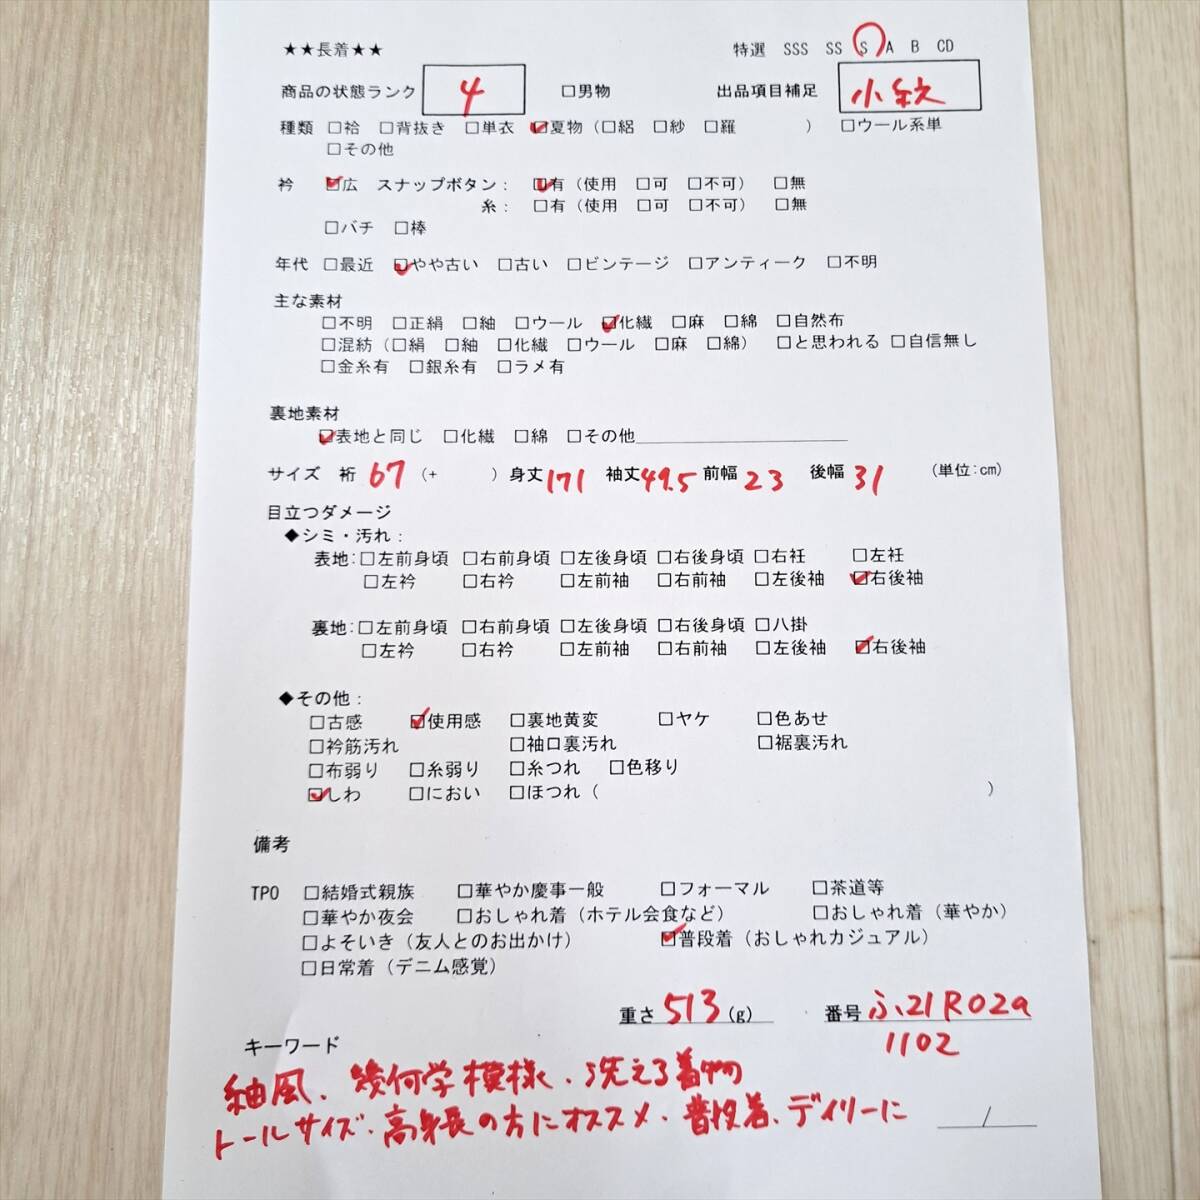 ★★長着★★ 特選 SSS SS S A B CD
商品の状態ランク 4 □男物 出品項目補足 小紋
種類 □袷 □背抜き □単衣 ☑夏物（□絽 □紗 □羅 ） □ウール系単
□その他
衿 ☑広 スナップボタン： ☑有（使用 □可 □不可） □無
糸： □有（使用 □可 □不可） □無
□バチ □棒
年代 □最近 ☑やや古い □古い □ビンテージ □アンティーク □不明
主な素材
□不明 □正絹 □紬 □ウール ☑化繊 □麻 □綿 □自然布
□混紡（□絹 □紬 □化繊 □ウール □麻 □綿） □と思われる □自信無し
□金糸有 □銀糸有 □ラメ有
裏地素材
☑表地と同じ □化繊 □綿 □その他
サイズ 裄 67 （+ ） 身丈 171 袖丈 49.5 前幅 23 後幅 31 （単位：cm）
目立つダメージ
◆シミ・汚れ：
表地：□左前身頃 □右前身頃 □左後身頃 □右後身頃 □右衽 □左衽
□左衿 □右衿 □左前袖 □右前袖 □左後袖 ☑右後袖
裏地：□左前身頃 □右前身頃 □左後身頃 □右後身頃 □八掛
□左衿 □右衿 □左前袖 □右前袖 □左後袖 ☑右後袖
◆その他：
□古感 ☑使用感 □裏地黄変 □ヤケ □色あせ
□衿筋汚れ □袖口裏汚れ □裾裏汚れ
□布弱り □糸弱り □糸つれ □色移り
☑しわ □におい □ほつれ（ ）
備考
TPO □結婚式親族 □華やか慶事一般 □フォーマル □茶道等
□華やか夜会 □おしゃれ着（ホテル会食など） □おしゃれ着（華やか）
□よそいき（友人とのお出かけ） ☑普段着（おしゃれカジュアル）
□日常着（デニム感覚）
重さ 513 (g) 番号 ふ21R02a
1102
キーワード
紬風、幾何学模様、洗える着物
トールサイズ、高身長の方にオススメ、普段着、デイリーに /